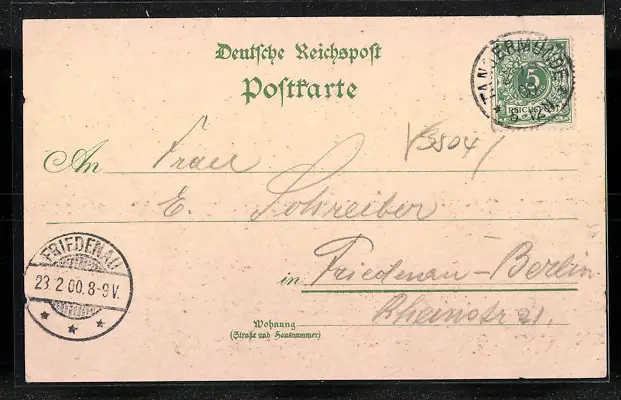 Deutsche Reichspost
Postkarte
TANGERMÜNDE
5
REICHSPOST
An Frau
(3504)
E. Schreiber
FRIEDENAU
23 2 00. 8-9 V.
* * *
in Friedenau-Berlin
Rheinstr 21.
Wohnung
(Straße und Hausnummer)